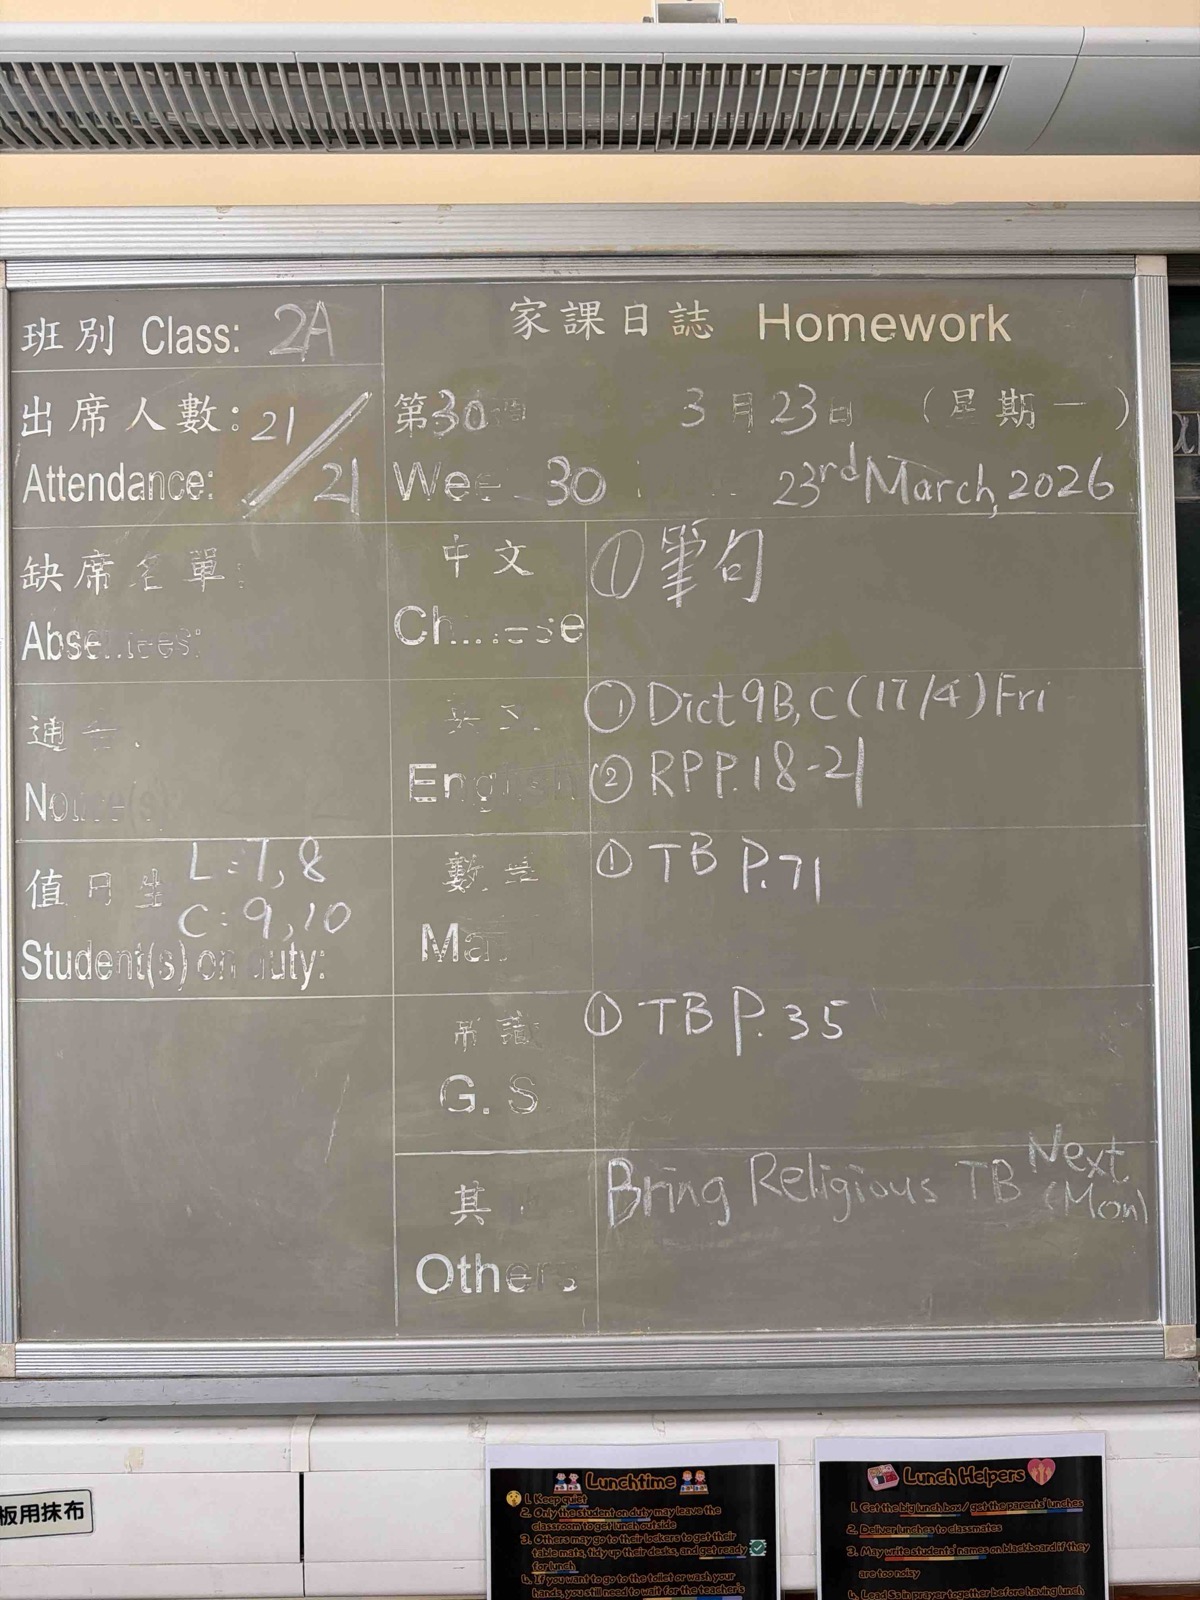 班別 Class: 2A
家課日誌 Homework
出席人數: 21/21
Attendance:
第30週 3月23日 (星期一)
Week 30 23rd March, 2026
缺席名單:
Absentees:
中文
Chinese
① 筆句
通告:
Notice(s)
英文
English
① Dict 9B, C (17/4) Fri
② RP P.18-21
值日生 L: 7, 8
C: 9, 10
Student(s) on duty:
數學
Maths
① TB P.71
常識
G. S.
① TB P. 35
其他
Others
Bring Religious TB Next (Mon)
板用抹布
Lunchtime
1. Keep quiet
2. Only the student on duty may leave the
classroom to get lunch outside
3. Others may go to their lockers to get their
table mats, tidy up their desks, and get ready
for lunch
4. If you want to go to the toilet or wash your
hands, you still need to wait for the teacher's
Lunch Helpers
1. Get the big lunch box / get the parents' lunches
2. Deliver lunches to classmates
3. May write students' names on blackboard if they
are too noisy
4. Lead Ss in prayer together before having lunch